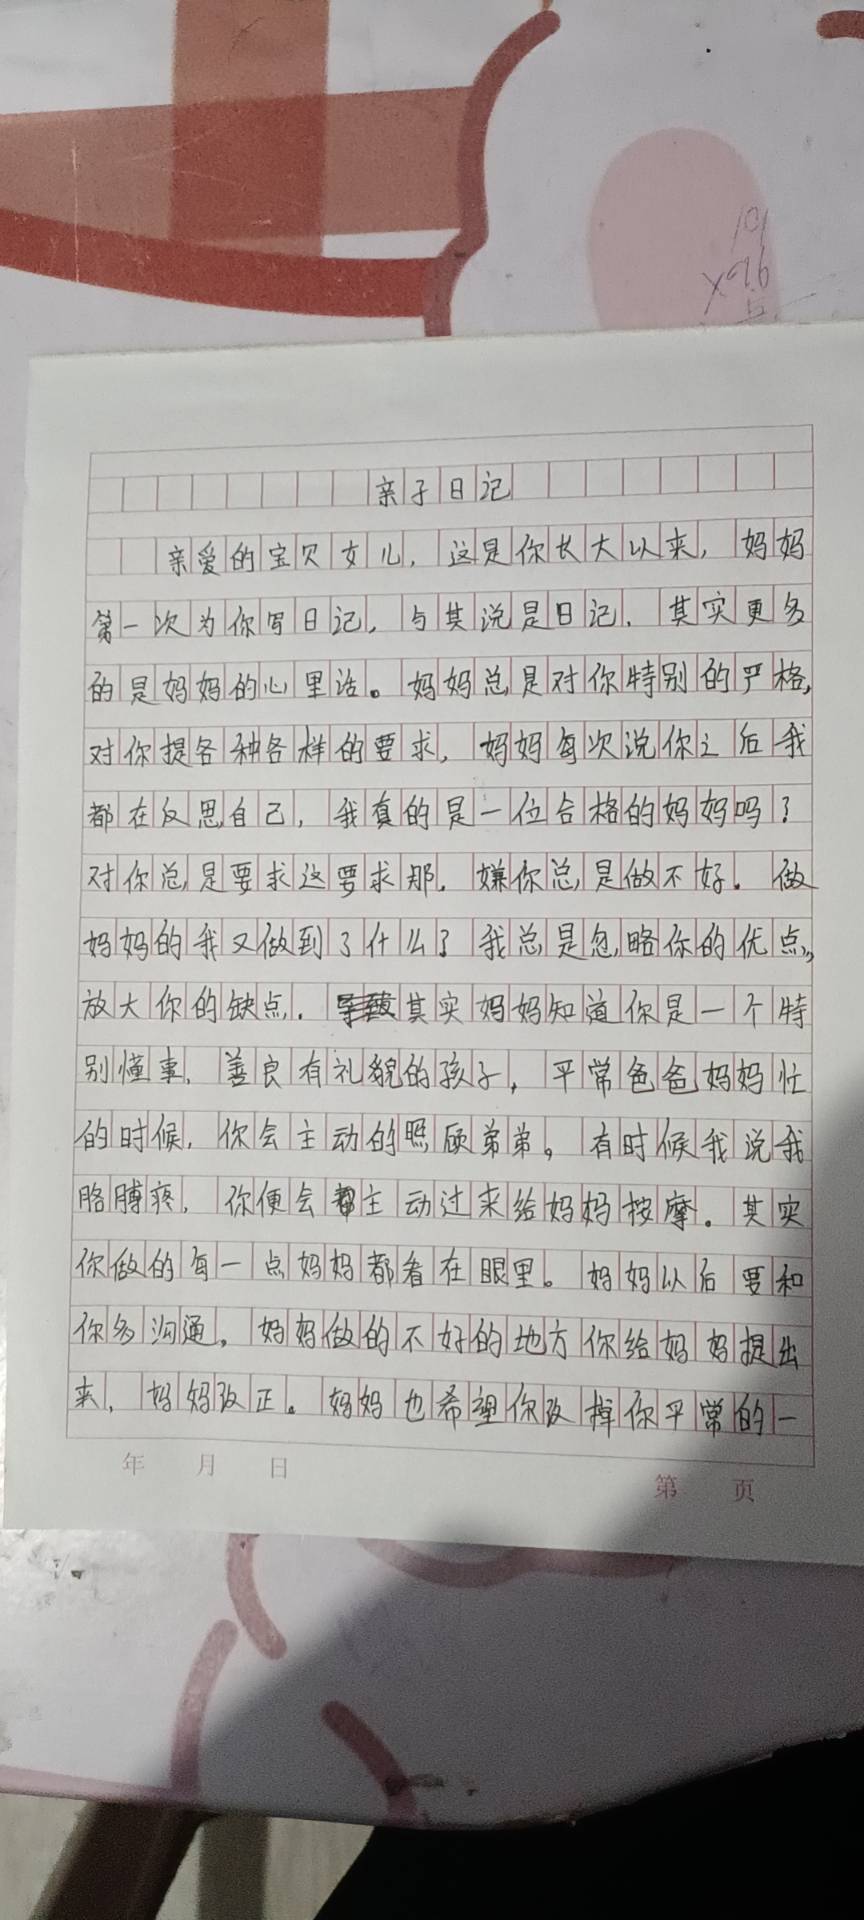 101
×96
亲子日记
亲爱的宝贝女儿，这是你长大以来，妈妈
第一次为你写日记，与其说是日记．其实更多
的是妈妈的心里话。妈妈总是对你特别的严格，
对你提各种各样的要求，妈妈每次说你之后我
都在反思自己，我真的是一位合格的妈妈吗？
对你总是要求这要求那．嫌你总是做不好．做
妈妈的我又做到了什么？我总是忽略你的优点，
放大你的缺点．其实妈妈知道你是一个特
别懂事，善良有礼貌的孩子，平常爸爸妈妈忙
的时候，你会主动的照顾弟弟，有时候我说我
胳膊疼，你便会主动过来给妈妈按摩。其实
你做的每一点妈妈都看在眼里。妈妈以后要和
你多沟通，妈妈做的不好的地方你给妈妈提出
来，妈妈改正。妈妈也希望你改掉你平常的一
年 月 日
第 页